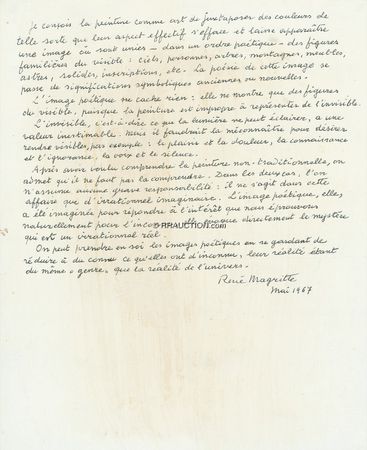 Je conçois la peinture comme art de juxtaposer des couleurs de
telle sorte que leur aspect effectif s'efface et laisse apparaître
une image où sont unies — dans un ordre poétique — des figures
familières du visible : ciels, personnes, arbres, montagnes, meubles,
astres, solides, inscriptions, etc. La poésie de cette image se
passe de significations symboliques anciennes ou nouvelles.
L'image poétique ne cache rien : elle ne montre que des figures
du visible, puisque la peinture est impropre à représenter de l'invisible.
L'invisible, c'est-à-dire ce que la lumière ne peut éclairer, a une
valeur inestimable. Mais il faudrait la méconnaître pour désirer
rendre visible, par exemple : le plaisir et la douleur, la connaissance
et l'ignorance, la voix et le silence.
Après avoir voulu comprendre la peinture non-traditionnelle, on
admet qu'il ne faut pas la comprendre. Dans les deux cas, l'on
n'assume aucune grave responsabilité : il ne s'agit dans cette
affaire que d'irrationnel imaginaire. L'image poétique, elle,
a été imaginée pour répondre à l'intérêt que nous éprouvons
naturellement pour l'inconnu, elle évoque directement le mystère
RRAUCTION.COM
qui est un irrationnel réel.
On peut prendre en soi les images poétiques en se gardant de
réduire à du connu ce qu'elles ont d'inconnu, leur réalité étant
du même "genre" que la réalité de l'univers.
René Magritte
Mai 1967